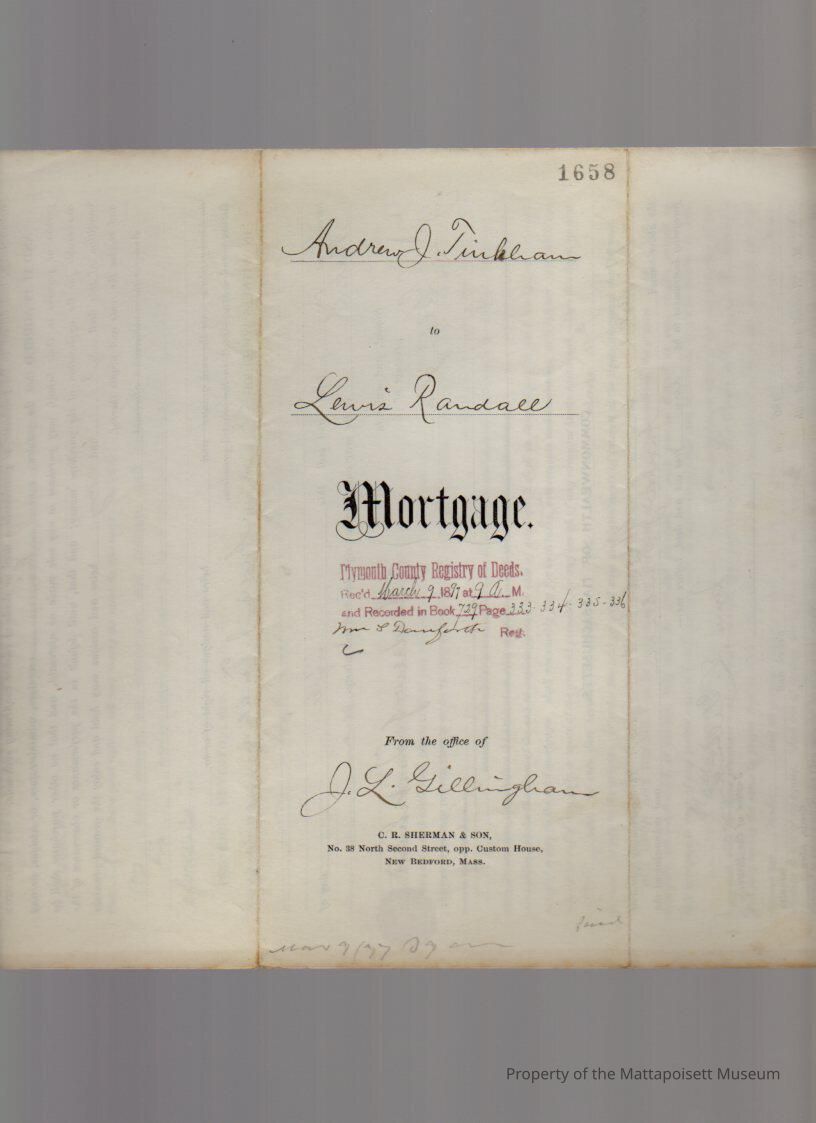 1658
Andrew J. Tinkham
to
Lewis Randall
Mortgage.
Plymouth County Registry of Deeds.
Rec'd March 9 1897 at 9 A. M.
and Recorded in Book 729 Page 333-334-335-336
Wm S Danforth Reg.
From the office of
J. L. Gillingham
C. R. SHERMAN & SON,
No. 38 North Second Street, opp. Custom House,
NEW BEDFORD, MASS.
Mar 9/97 9 am
Property of the Mattapoisett Museum